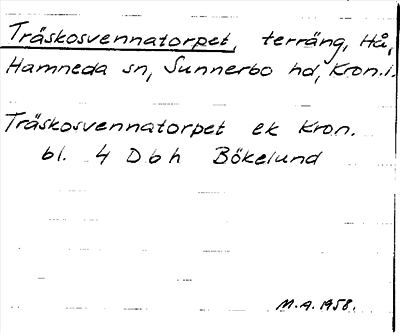 Träskosvennatorpet, terräng, Hå,
Hamneda sn, Sunnerbo hd, Kron.l.
Träskosvennatorpet ek Kron.
bl. 4 D b h Bökelund
M.A. 1958.